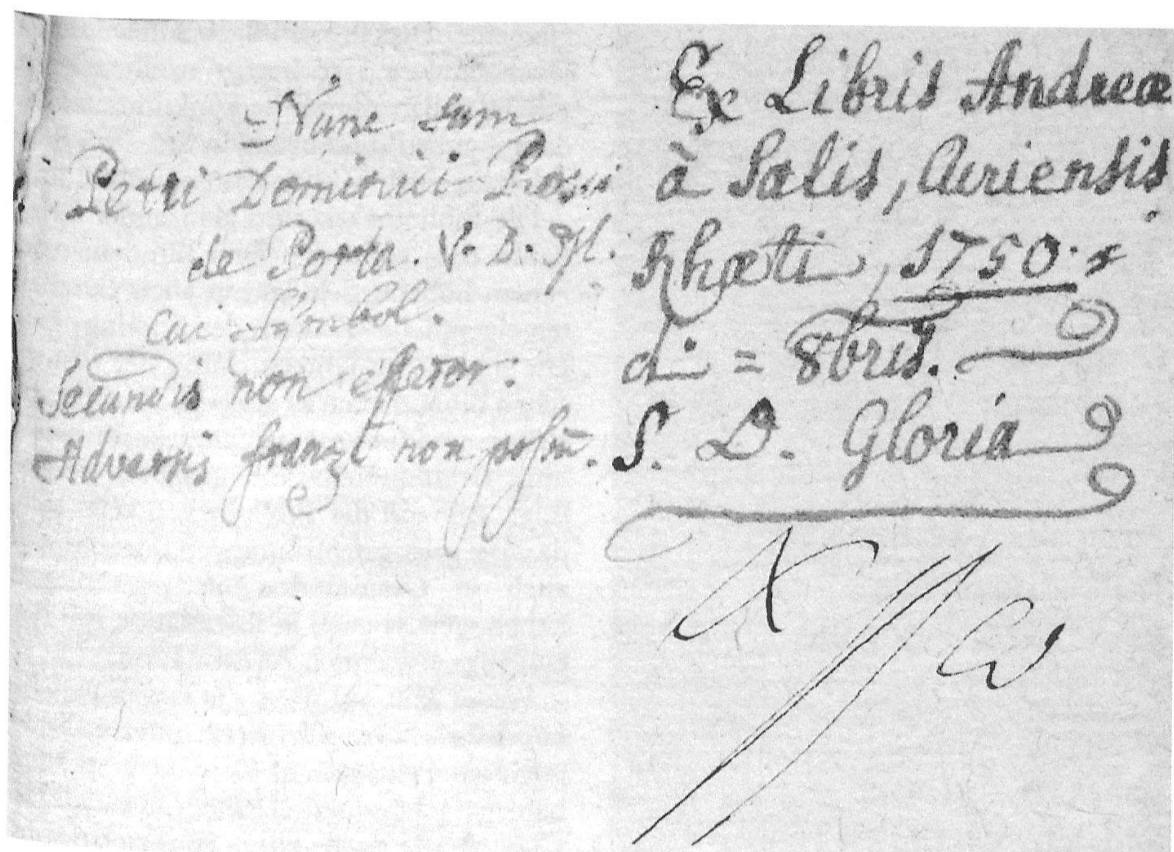 Nunc sum
Petri Dominici Rosii
de Porta. V. D. M.
Cui Symbol.
Secundis non efferor.
Adversis frangi non possū.
Ex Libris Andreæ
à Salis, Curiensis
Rhæti, 1750.
d. = 8bris.
S. D. Gloria